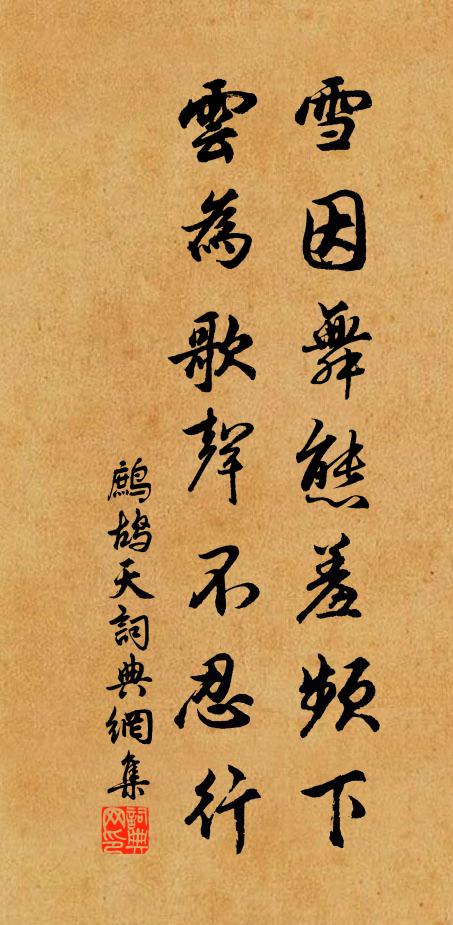 雪因舞態羞頻下
雲為歌聲不忍行
鷓鴣天詞典網集
詞典网印